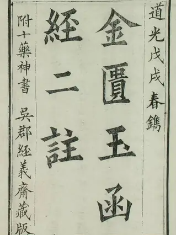 道光戊戌春鐫
金匱玉函
經二註
附十藥神書　吳郡經義齋藏版